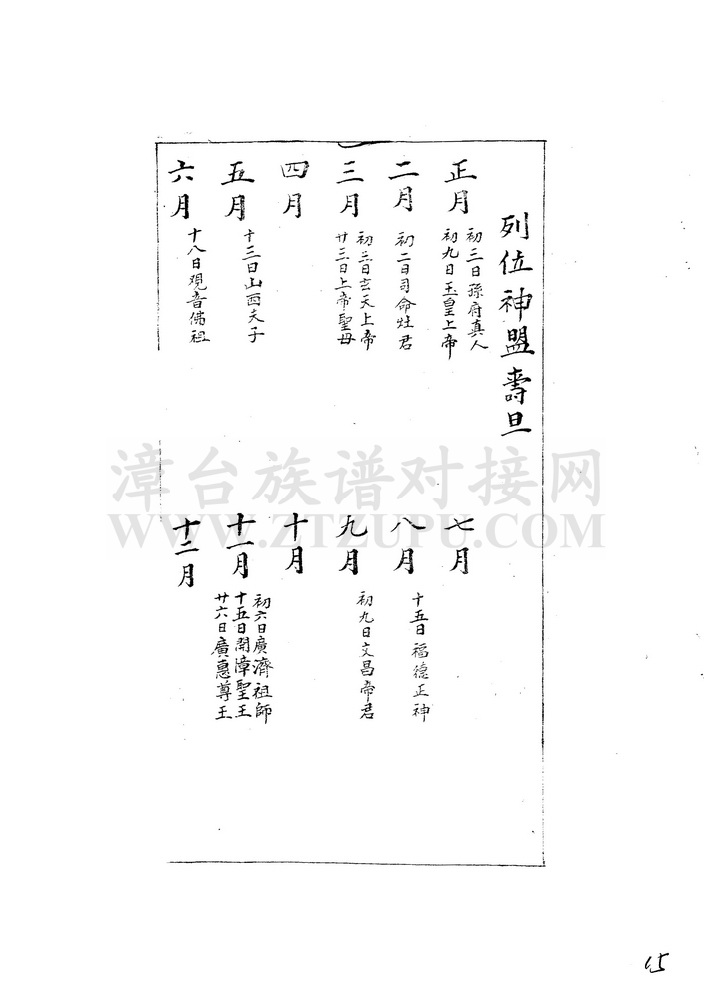 列位神盟壽旦
正月
初三日孫府真人
初九日玉皇上帝
二月
初二日司命灶君
三月
初三日玄天上帝
廿三日上帝聖母
四月
五月
十三日山西夫子
六月
十八日观音佛祖
七月
八月
十五日福德正神
九月
初九日文昌帝君
十月
十一月
初六日廣濟祖師
十五日開漳聖王
廿六日廣惠尊王
十二月
漳台族谱对接网
WWW.ZTZUPU.COM
15